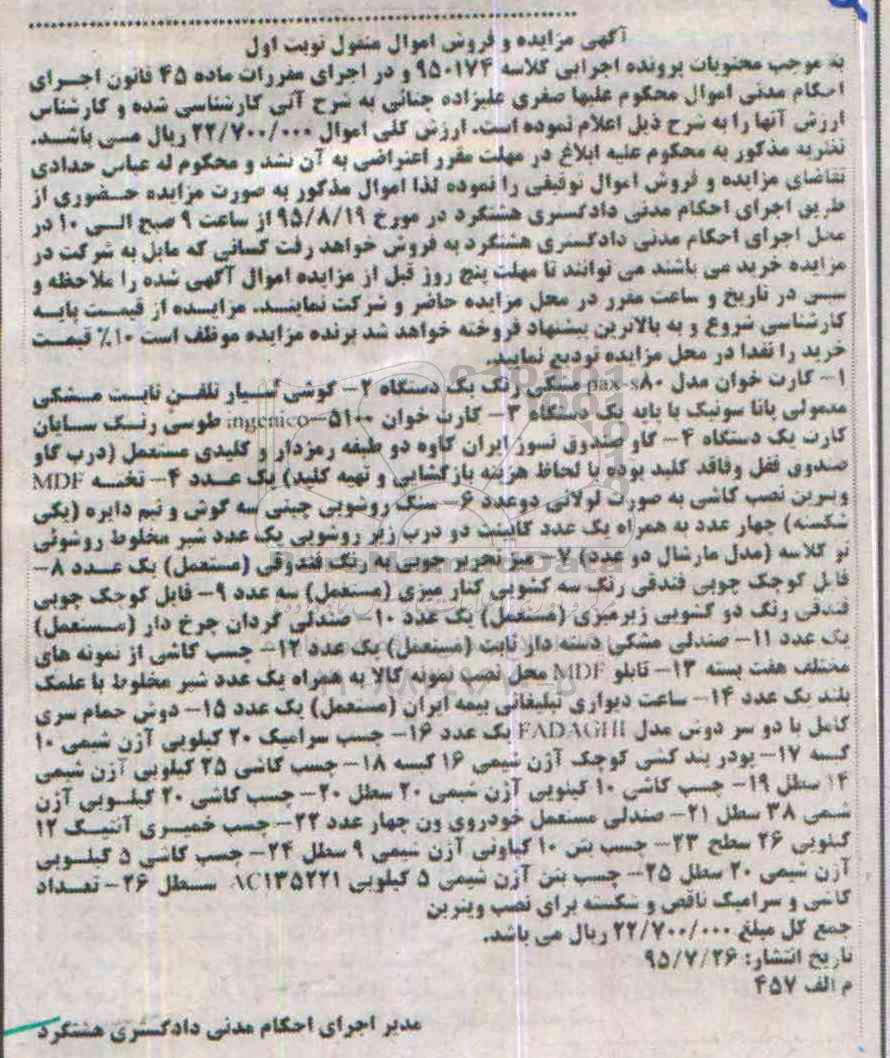 آگهی مزایده و فروش اموال منقول نوبت اول
به موجب محتویات پرونده اجرایی کلاسه ۹۵۰۱۷۴ و در اجرای مقررات ماده ۴۵ قانون اجرای
احکام مدنی اموال محکوم علیها صغری علیزاده چنائی به شرح آتی کارشناسی شده و کارشناس
ارزش آنها را به شرح ذیل اعلام نموده است. ارزش کلی اموال ۲۲/۷۰۰/۰۰۰ ریال می باشد.
نظریه مذکور به محکوم علیه ابلاغ در مهلت مقرر اعتراضی به آن نشد و محکوم له عباس حدادی
تقاضای مزایده و فروش اموال توقیفی را نموده لذا اموال مذکور به صورت مزایده حضوری از
طریق اجرای احکام مدنی دادگستری هشتگرد در مورخ ۹۵/۸/۱۹ از ساعت ۹ صبح الی ۱۰ در
محل اجرای احکام مدنی دادگستری هشتگرد به فروش خواهد رفت کسانی که مایل به شرکت در
مزایده خرید می باشند می توانند تا مهلت پنج روز قبل از مزایده اموال آگهی شده را ملاحظه و
سپس در تاریخ و ساعت مقرر در محل مزایده حاضر و شرکت نمایند. مزایده از قیمت پایه
کارشناسی شروع و به بالاترین پیشنهاد فروخته خواهد شد برنده مزایده موظف است ۱۰٪ قیمت
خرید را نقدا در محل مزایده تودیع نمایید.
۱- کارت خوان مدل pax-s۸۰ مشکی رنگ یک دستگاه ۲- گوشی سیار تلفن ثابت مشکی
معمولی پانا سونیک با پایه یک دستگاه ۳- کارت خوان ingenico-۵۱۰۰ طوسی رنگ سایان
کارت یک دستگاه ۴- گاو صندوق نسوز ایران کاوه دو طبقه رمزدار و کلیدی مستعمل (درب گاو
صندوق قفل وفاقد کلید بوده با لحاظ هزینه بازگشایی و تهیه کلید) یک عدد ۴- تخته MDF
ویترین نصب کاشی به صورت لولائی دوعدد ۶- سنگ روشویی چینی سه گوش و نیم دایره (یکی
شکسته) چهار عدد به همراه یک عدد کابینت دو درب زیر روشویی یک عدد شیر مخلوط روشوئی
نو کلاسه (مدل مارشال دو عدد) ۷- میز تحریر چوبی به رنگ فندوقی (مستعمل) یک عدد ۸-
فایل کوچک چوبی فندقی رنگ سه کشویی کنار میزی (مستعمل) سه عدد ۹- فایل کوچک چوبی
فندقی رنگ دو کشویی زیرمیزی (مستعمل) یک عدد ۱۰- صندلی گردان چرخ دار (مستعمل)
یک عدد ۱۱- صندلی مشکی دسته دار ثابت (مستعمل) یک عدد ۱۲- چسب کاشی از نمونه های
مختلف هفت بسته ۱۳- تابلو MDF محل نصب نمونه کالا به همراه یک عدد شیر مخلوط با علمک
بلند یک عدد ۱۴- ساعت دیواری تبلیغاتی بیمه ایران (مستعمل) یک عدد ۱۵- دوش حمام سری
کامل با دو سر دوش مدل FADAGHI یک عدد ۱۶- چسب سرامیک ۲۰ کیلویی آژن شیمی ۱۰
کیسه ۱۷- پودر بند کشی کوچک آژن شیمی ۱۶ کیسه ۱۸- چسب کاشی ۲۵ کیلویی آژن شیمی
۱۴ سطل ۱۹- چسب کاشی ۱۰ کیلویی آژن شیمی ۲۰ سطل ۲۰- چسب کاشی ۲۰ کیلویی آژن
شیمی ۳۸ سطل ۲۱- صندلی مستعمل خودروی ون چهار عدد ۲۲- چسب خمیری آنتیک ۱۲
کیلویی ۲۶ سطح ۲۳- چسب بتن ۱۰ کیلویی آژن شیمی ۹ سطل ۲۴- چسب کاشی ۵ کیلویی
آژن شیمی ۲۰ سطل ۲۵- چسب بتن آژن شیمی ۵ کیلویی AC۱۳۵۲۲۱ سطل ۲۶- تعداد
کاشی و سرامیک ناقص و شکسته برای نصب ویترین
جمع کل مبلغ ۲۲/۷۰۰/۰۰۰ ریال می باشد.
تاریخ انتشار: ۹۵/۷/۲۶
م الف ۴۵۷
مدیر اجرای احکام مدنی دادگستری هشتگرد